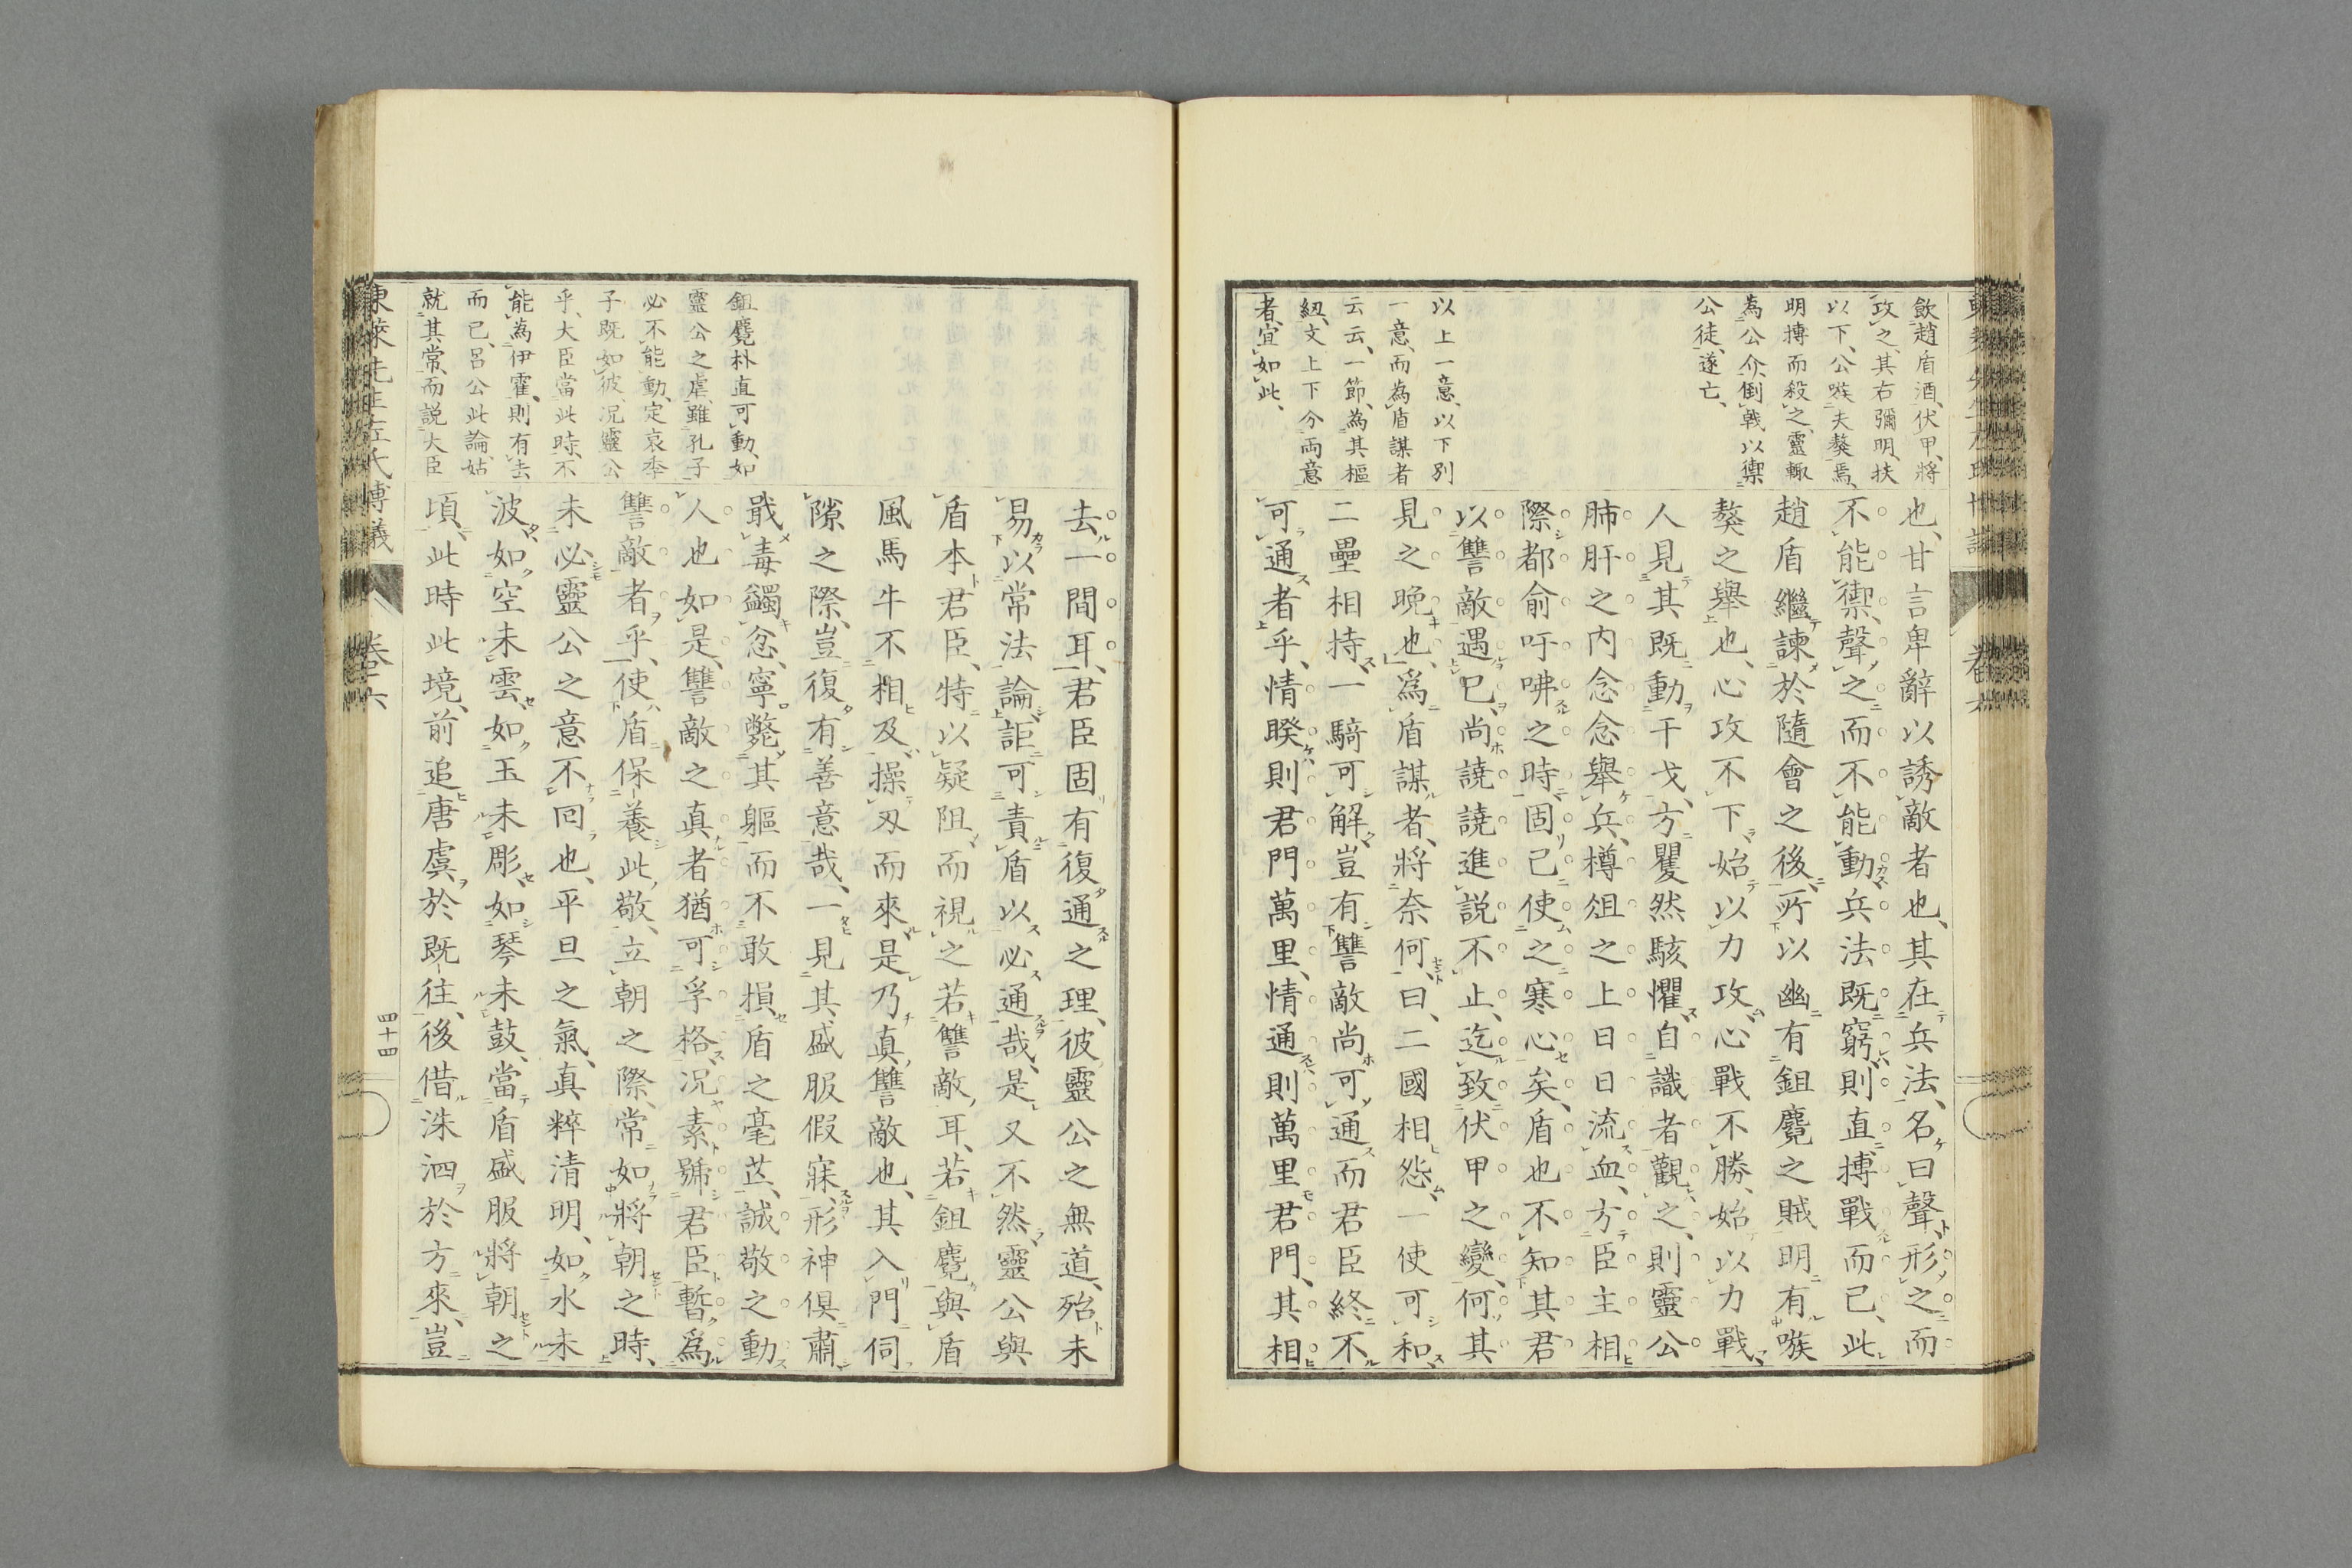 飮趙盾酒、伏甲、將
攻之、其右彌明、扶
以下、公嗾夫獒焉、
明搏而殺之、靈輒
為公介、倒戟以禦
公徒、遂亡、
以上一意、以下別
一意、而為盾謀者
云云、一節、為其樞
紐、文上下分兩意
者、宜如此、
也、甘言卑辭以誘敵者也、其在兵法、名曰聲、形之而
不能禦、聲之而不能動、兵法既窮、則直搏戰而已、此
趙盾繼諫於隨會之後、所以幽有鉏麑之賊、明有嗾
獒之舉也、心攻不下、始以力攻、心戰不勝、始以力戰、
人見其既動干戈、方矍然駭懼、自識者觀之、則靈公
肺肝之内念念舉兵、樽俎之上日日流血、方臣主相
際都俞吁咈之時、固已使之寒心矣、盾也不知其君
以讐敵遇已、尚譊譊進説不止、迄致伏甲之變、何其
見之晩也、爲盾謀者、將奈何、曰、二國相怨、一使可和、
二壘相持、一騎可解、豈有讐敵尚可通而君臣終不
可通者乎、情睽則君門萬里、情通則萬里君門、其相
去一間耳、君臣固有復通之理、彼靈公之無道、殆未
易以常法論、詎可責盾以必通哉、是又不然、靈公與
盾本君臣、特以疑阻而視之若讐敵耳、若鉏麑與盾
風馬牛不相及、操刃而來、是乃真讐敵也、其入門伺
隙之際、豈復有善意哉、一見其盛服假寐、形神俱肅、
戢毒蠲忿、寧斃其軀而不敢損盾之毫芒、誠敬之動
人也如是、讐敵之真者猶可孚格、况素號君臣暫爲
讐敵者乎、使盾保養此敬、立朝之際、常如將朝之時、
未必靈公之意不回也、平旦之氣、真粹清明、如水未
波、如空未雲、如玉未彫、如琴未鼓、當盾盛服將朝之
頃、此時此境、前追唐虞於既往、後借洙泗於方來、豈
鉏麑朴直可動、如
靈公之虐、雖孔子
必不能動、定哀季
子既如彼、况靈公
乎、大臣當此時、不
能為伊霍、則有去
而已、呂公此論、姑
就其常、而説大臣
東萊先生左氏博議
卷六
四十四